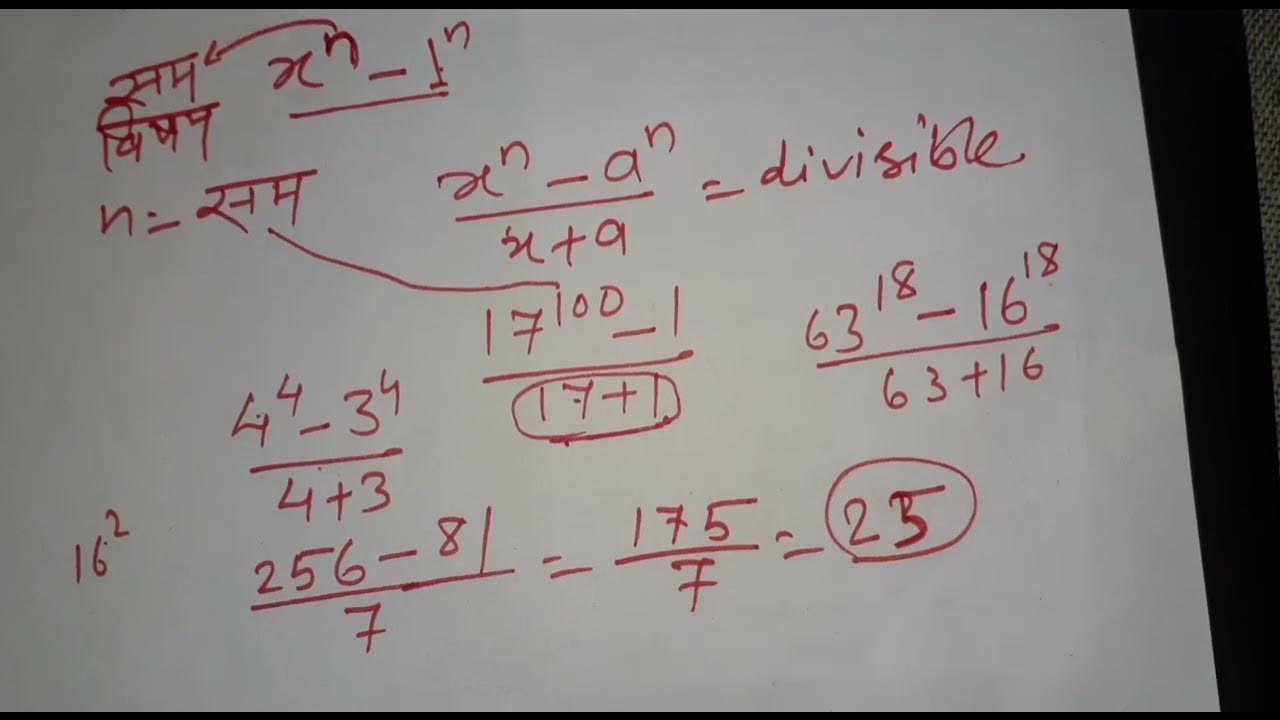 सम xⁿ - 1ⁿ
विषम
n = सम
xⁿ - aⁿ / x + a = divisible
17¹⁰⁰ - 1 / 17 + 1
63¹⁸ - 16¹⁸ / 63 + 16
4⁴ - 3⁴ / 4 + 3
16²
256 - 81 / 7 = 175 / 7 = 25